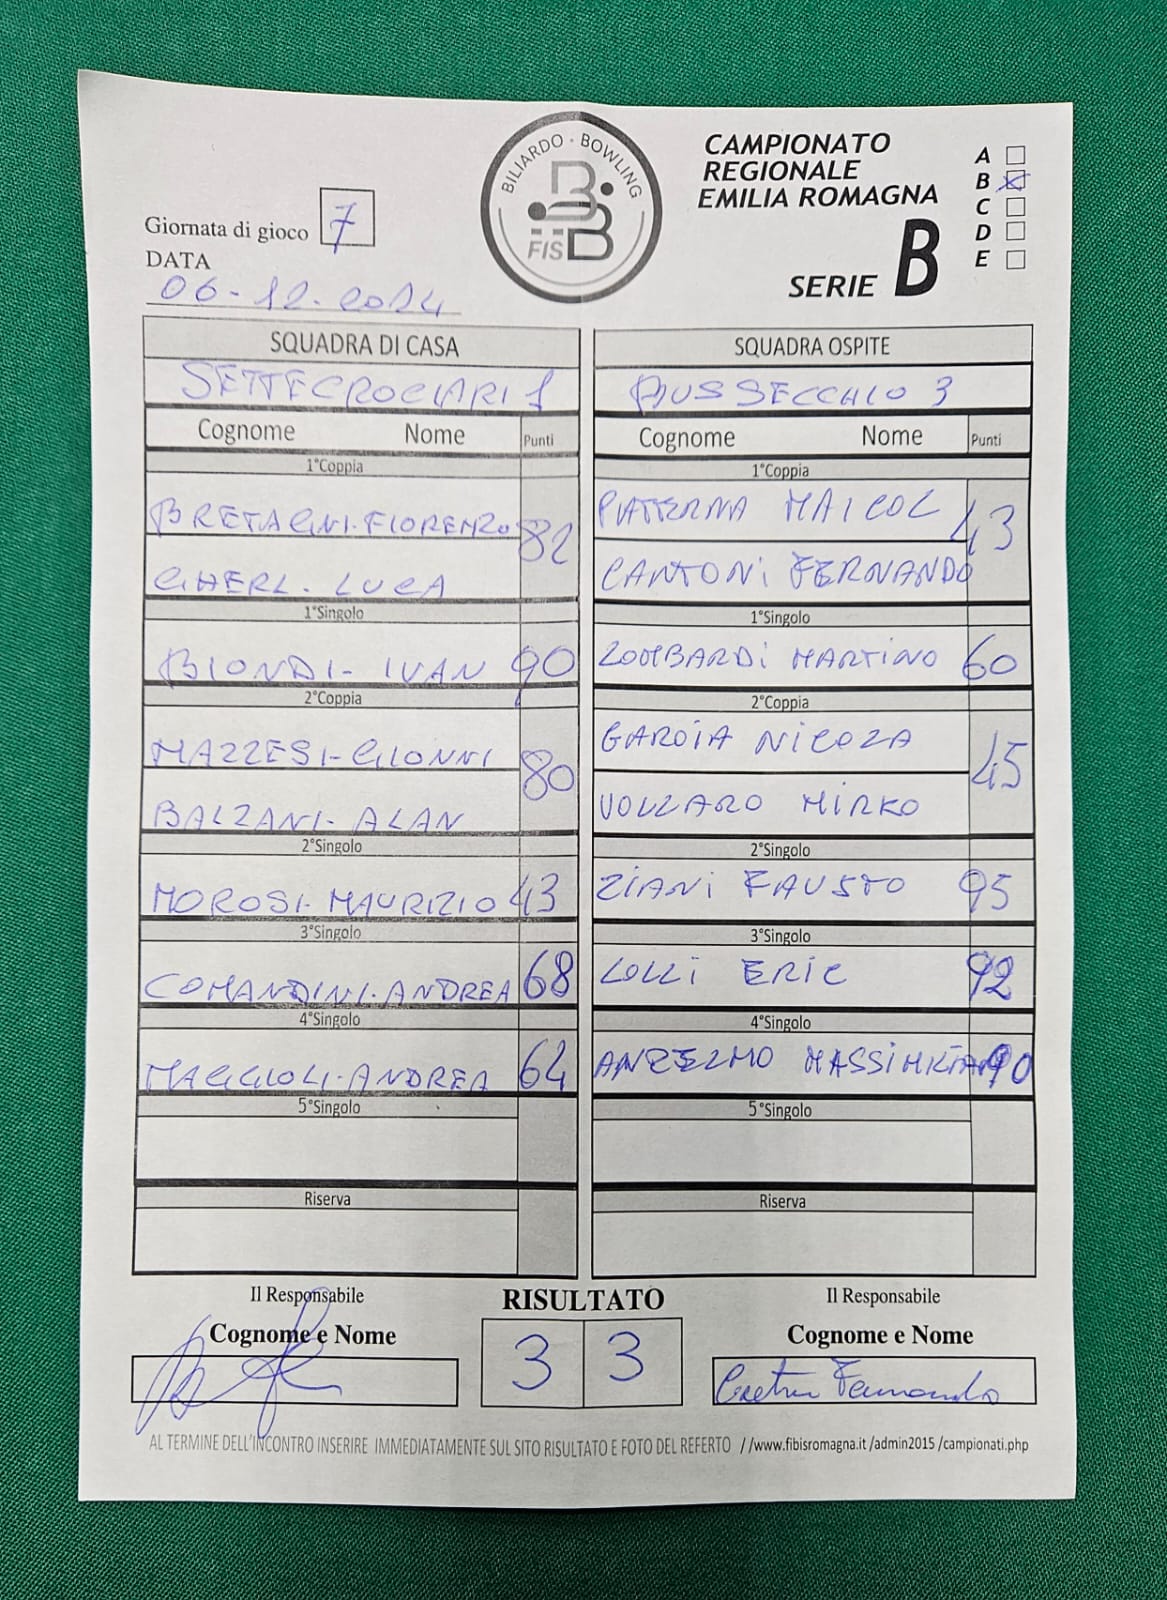 BILIARDO · BOWLING
FISBB
CAMPIONATO
REGIONALE
EMILIA ROMAGNA
SERIE B
A
B X
C
D
E
Giornata di gioco 7
DATA
06-12-2024
SQUADRA DI CASA
SETTECROCIARI 1
Cognome Nome Punti
1°Coppia
BRETAGNI-FIORENZO 82
GHERL. LUCA
1°Singolo
BIONDI- IVAN 90
2°Coppia
MAZZESI-GIONNI 80
BALZANI- ALAN
2°Singolo
MOROSI-MAURIZIO 43
3°Singolo
COMANDINI-ANDREA 68
4°Singolo
MAGGIOLI-ANDREA 64
5°Singolo
Riserva
SQUADRA OSPITE
BUSSECCHIO 3
Cognome Nome Punti
1°Coppia
PIATTERNA MAICOL 43
CANTONI FERNANDO
1°Singolo
LOMBARDI MARTINO 60
2°Coppia
GAROIA NICOLA 45
VOLLARO MIRKO
2°Singolo
ZIANI FAUSTO 95
3°Singolo
LOLLI ERIC 92
4°Singolo
ANSELMO 90
5°Singolo
Riserva
Il Responsabile
Cognome e Nome
RISULTATO
3 3
Il Responsabile
Cognome e Nome
Fernando
AL TERMINE DELL'INCONTRO INSERIRE IMMEDIATAMENTE SUL SITO RISULTATO E FOTO DEL REFERTO //www.fibisromagna.it /admin2015 /campionati.php